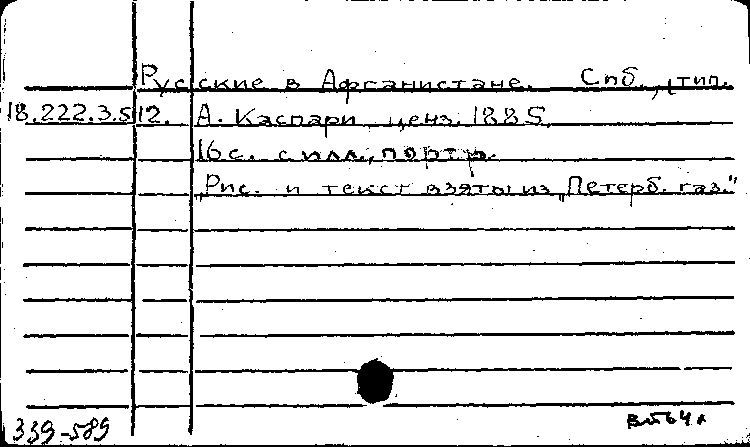 Русские в Афганистане. Спб., тип.
18.222.3.512. А. Каспари ценз. 1885.
16 с. с илл., портр.
"Рис. и текст взяты из „Петерб. газ."
339-589